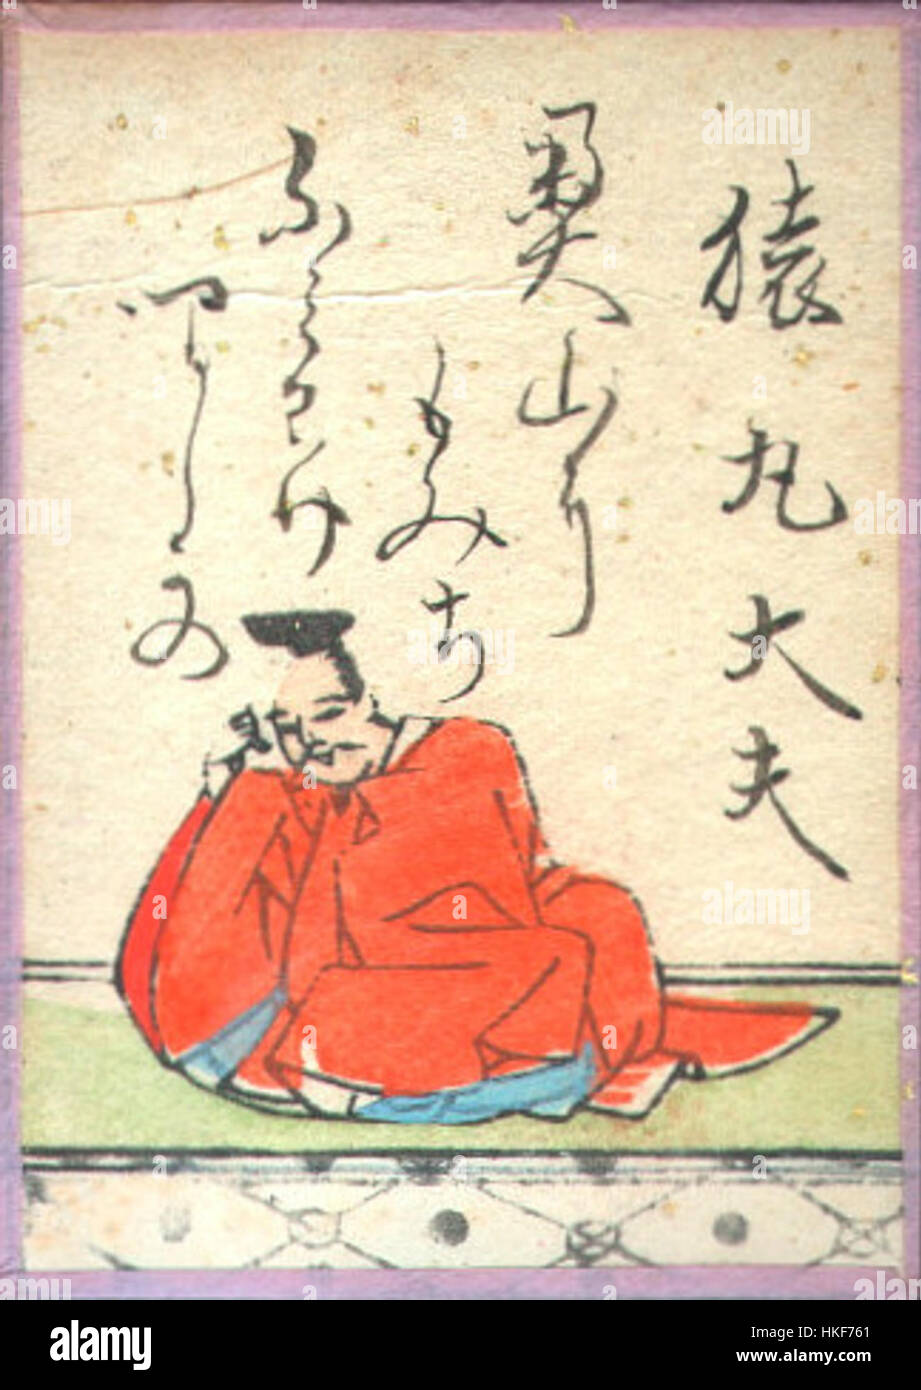 猿丸大夫
奥山に
もみち
ふみわけ
啼しかの
alamy
Image ID: HKF761
www.alamy.com